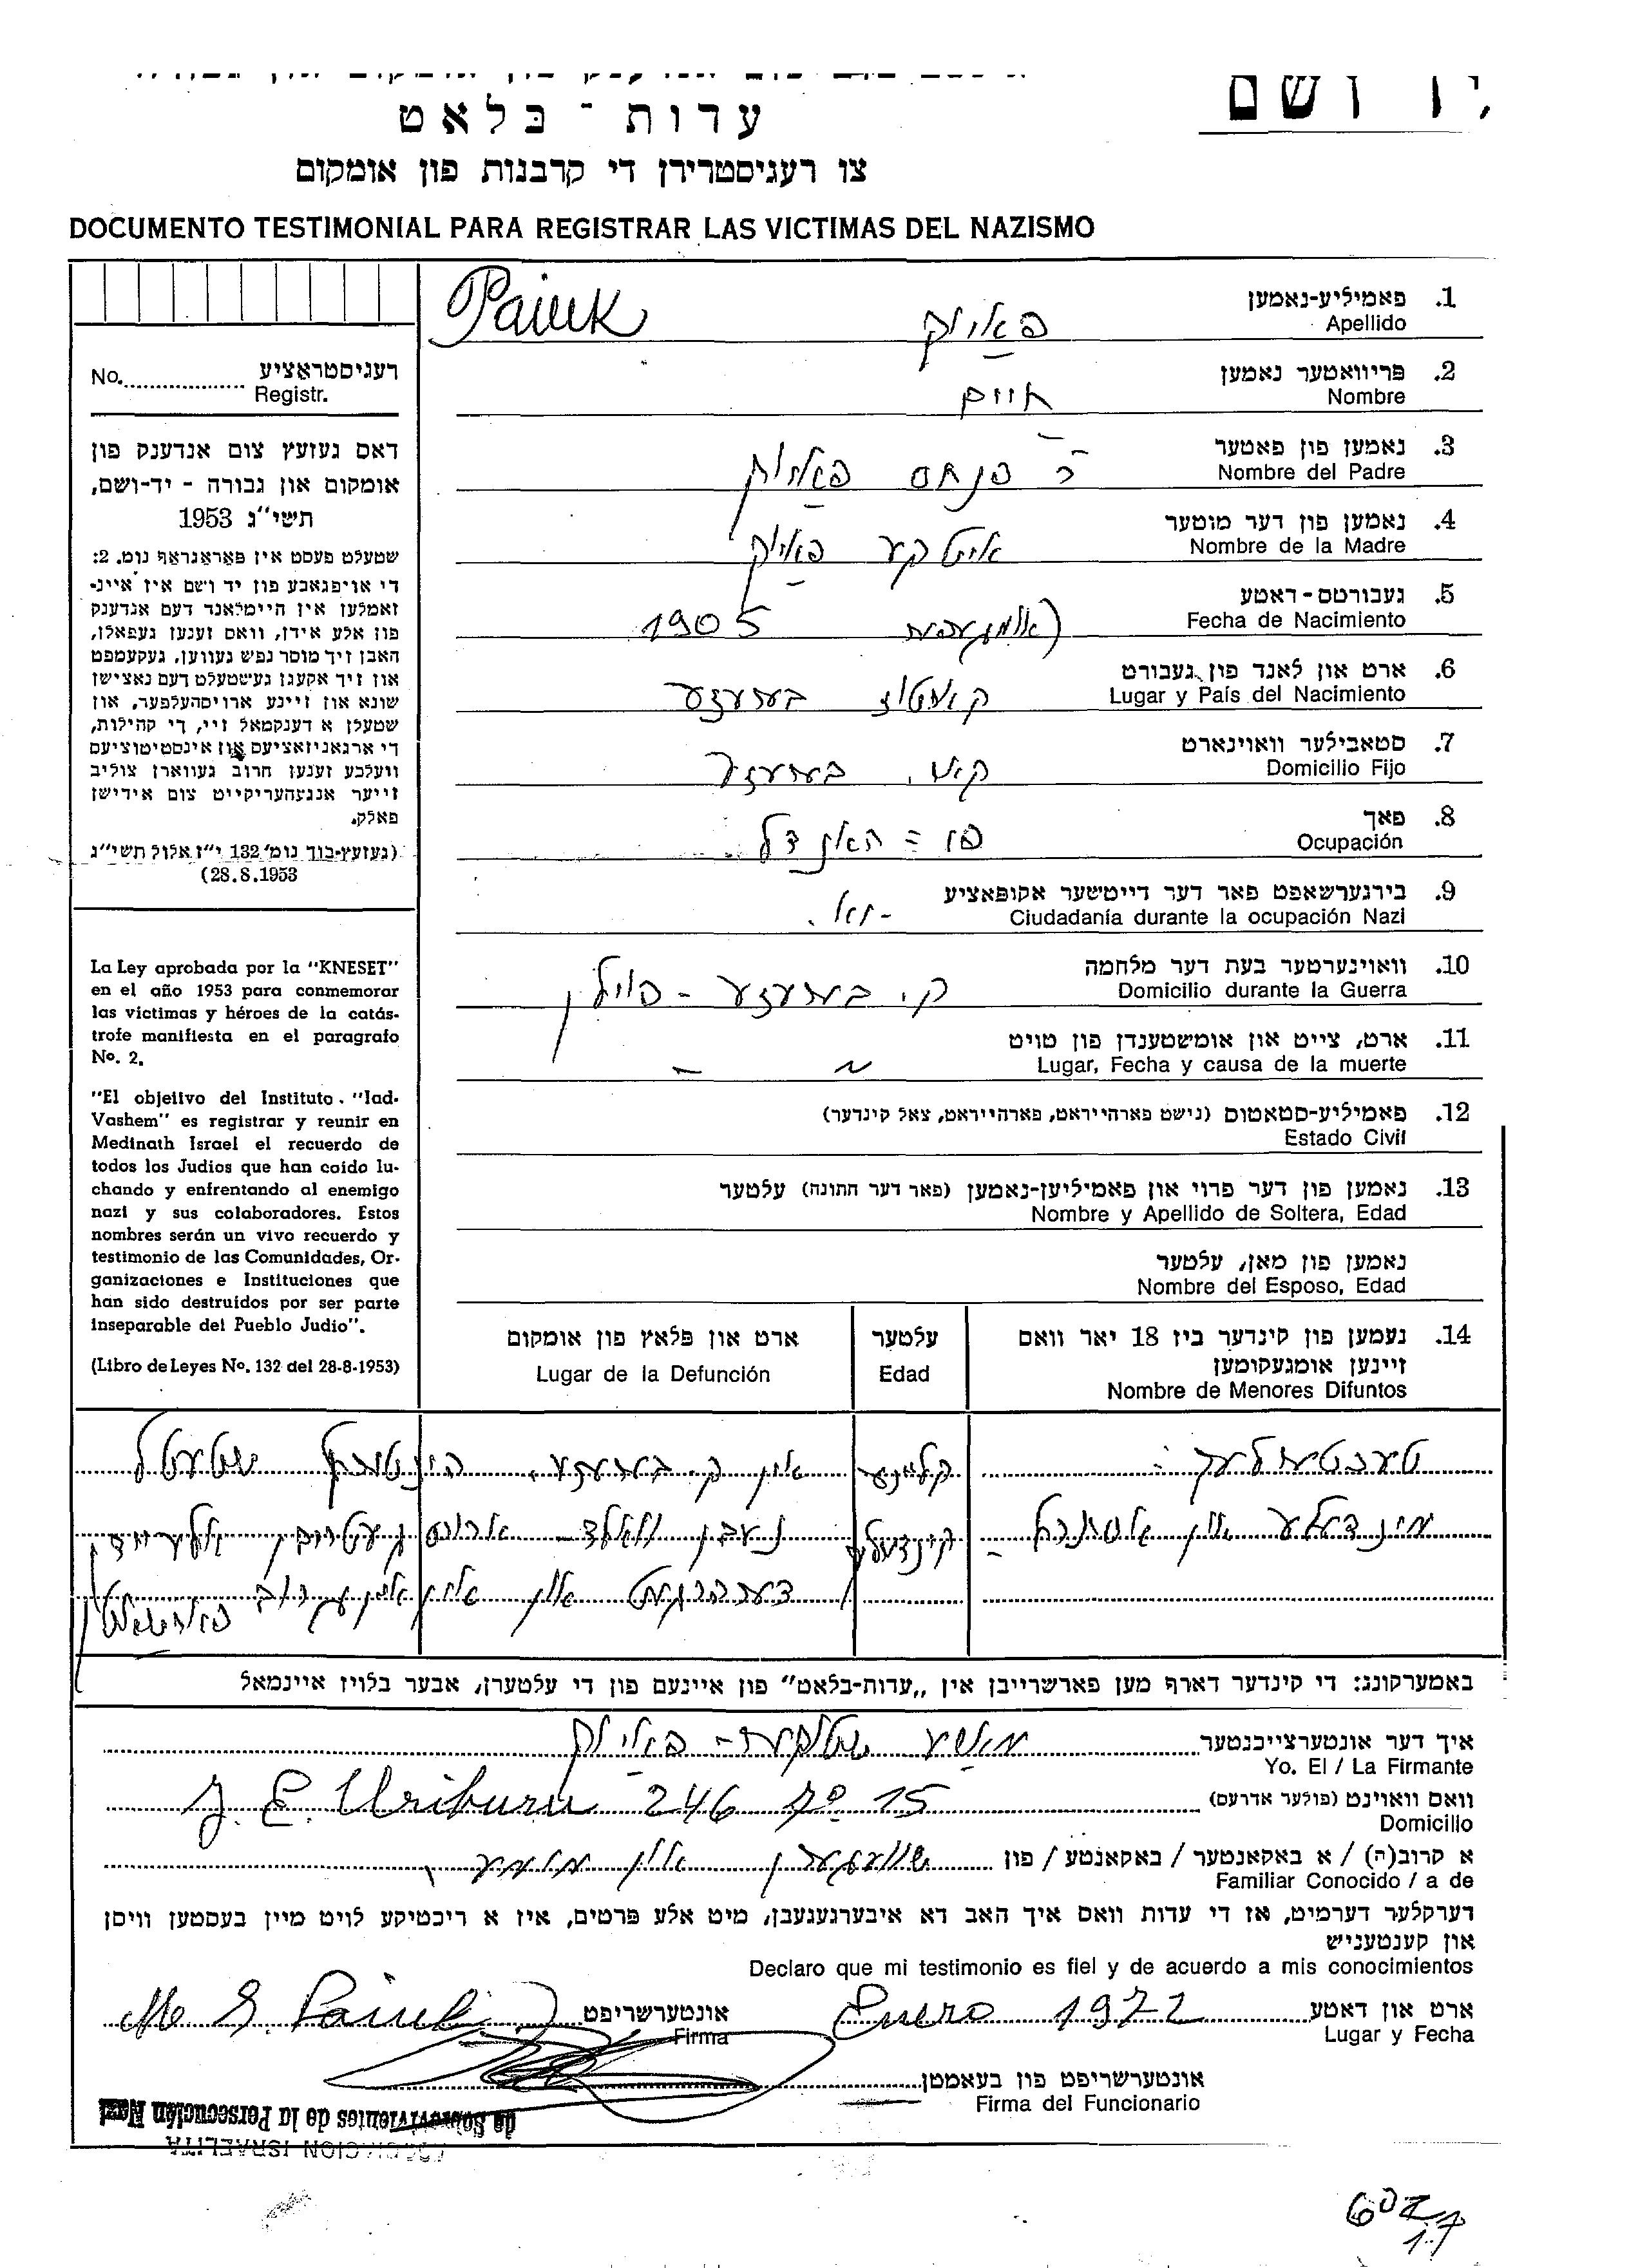 ושם
עדות - בלאט
צו רעגיסטרירן די קרבנות פון אומקום
DOCUMENTO TESTIMONIAL PARA REGISTRAR LAS VICTIMAS DEL NAZISMO
1. פאמיליע-נאמען
Apellido
פאיוק
Paiuk
2. פריוואטער נאמען
Nombre
חיים
3. נאמען פון פאטער
Nombre del Padre
ר' פנחס פאיוק
4. נאמען פון דער מוטער
Nombre de la Madre
איטקע פאיוק
5. געבורטס-דאטע
Fecha de Nacimiento
1905
6. ארט און לאנד פון געבורט
Lugar y País del Nacimiento
בערעזע
7. סטאבילער וואוינארט
Domicilio Fijo
בערעזע
8. פאך
Ocupación
האנדל
9. בירגערשאפט פאר דער דייטשער אקופאציע
Ciudadanía durante la ocupación Nazi
10. וואוינערטער בעת דער מלחמה
Domicilio durante la Guerra
ק. בערעזע - פוילן
11. ארט, צייט און אומשטענדן פון טויט
Lugar, Fecha y causa de la muerte
12. פאמיליע-סטאטוס (נישט פארהייראט, פארהייראט, צאל קינדער)
Estado Civil
13. נאמען פון דער פרוי און פאמיליען-נאמען (פאר דער חתונה) עלטער
Nombre y Apellido de Soltera, Edad
נאמען פון מאן, עלטער
Nombre del Esposo, Edad
14. נעמען פון קינדער ביז 18 יאר וואס
זיינען אומגעקומען
Nombre de Menores Difuntos
עלטער
Edad
ארט און פלאץ פון אומקום
Lugar de la Defunción
טעכטערלעך: קליינע אין ק. בערעזע, הינטערן שטעטל
מינדעלע און אסתרל - קינדערלעך נעבן וואלד ארויס געטריבן
דערהרגעט און אין איין גרוב
No. רעגיסטראציע
Registr.
דאס געזעץ צום אנדענק פון
אומקום און גבורה - יד-ושם,
תשי"ג 1953
שטעלט פעסט אין פאראגראף נומ. 2:
די אויפגאבע פון יד ושם איז איינ-
זאמלען אין היימלאנד דעם אנדענק
פון אלע אידן, וואס זענען געפאלן,
האבן זיך מוסר נפש געווען, געקעמפט
און זיך אקעגן געשטעלט דעם נאצישן
שונא און זיינע ארויסהעלפער, און
שטעלן א דענקמאל זיי, די קהילות,
די ארגאניזאציעס און אינסטיטוציעס
וועלכע זענען חרוב געווארן צוליב
זייער אנגעהעריקייט צום אידישן
פאלק.
(געזעץ-בוך נומ' 132 י"ז אלול תשי"ג
28.8.1953)
La Ley aprobada por la "KNESET"
en el año 1953 para conmemorar
las víctimas y héroes de la catás-
trofe manifiesta en el paragrafo
Nº. 2.
"El objetivo del Instituto. "Iad-
Vashem" es registrar y reunir en
Medinath Israel el recuerdo de
todos los Judios que han caido lu-
chando y enfrentando al enemigo
nazi y sus colaboradores. Estos
nombres serán un vivo recuerdo y
testimonio de las Comunidades, Or-
ganizaciones e Instituciones que
han sido destruidos por ser parte
inseparable del Pueblo Judio".
(Libro de Leyes Nº. 132 del 28-8-1953)
באמערקונג: די קינדער דארף מען פארשרייבן אין „עדות-בלאט" פון איינעם פון די עלטערן, אבער בלויז איינמאל
איך דער אונטערצייכנטער
Yo. El / La Firmante
מאשע פאיוק
וואס וואוינט (פולער אדרעס)
Domicilio
J. E. Uriburu 246 7º 15
א קרוב(ה) / א באקאנטער / באקאנטע / פון
Familiar Conocido / a de
שוועגערין און מומע
דערקלער דערמיט, אז די עדות וואס איך האב דא איבערגעגעבן, מיט אלע פרטים, איז א ריכטיקע לויט מיין בעסטען וויסן
און קענטעניש
Declaro que mi testimonio es fiel y de acuerdo a mis conocimientos
ארט און דאטע
Lugar y Fecha
Enero 1972
אונטערשריפט
Firma
M S. Paiuk
אונטערשריפט פון בעאמטן
Firma del Funcionario
de Sobrevivientes de la Persecución Nazi
ASOCIACION ISRAELITA